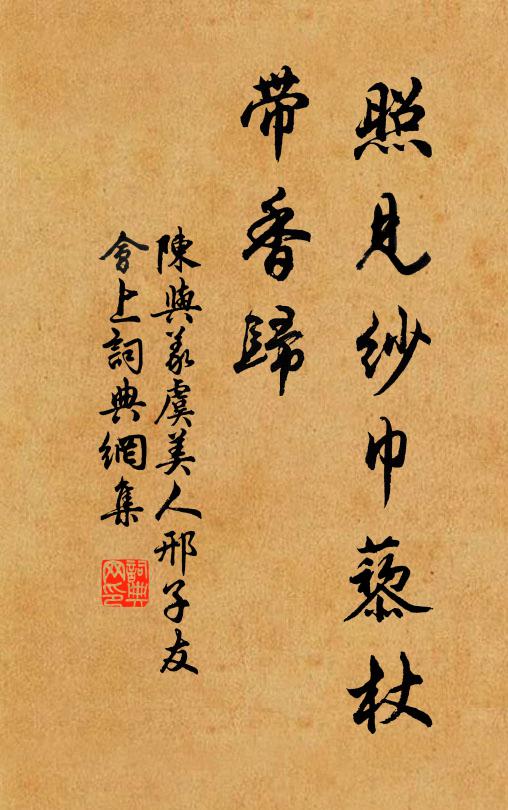 照見纱巾藜杖
带香歸
陳與義虞美人邢子友
會上詞典網集
詞典网印